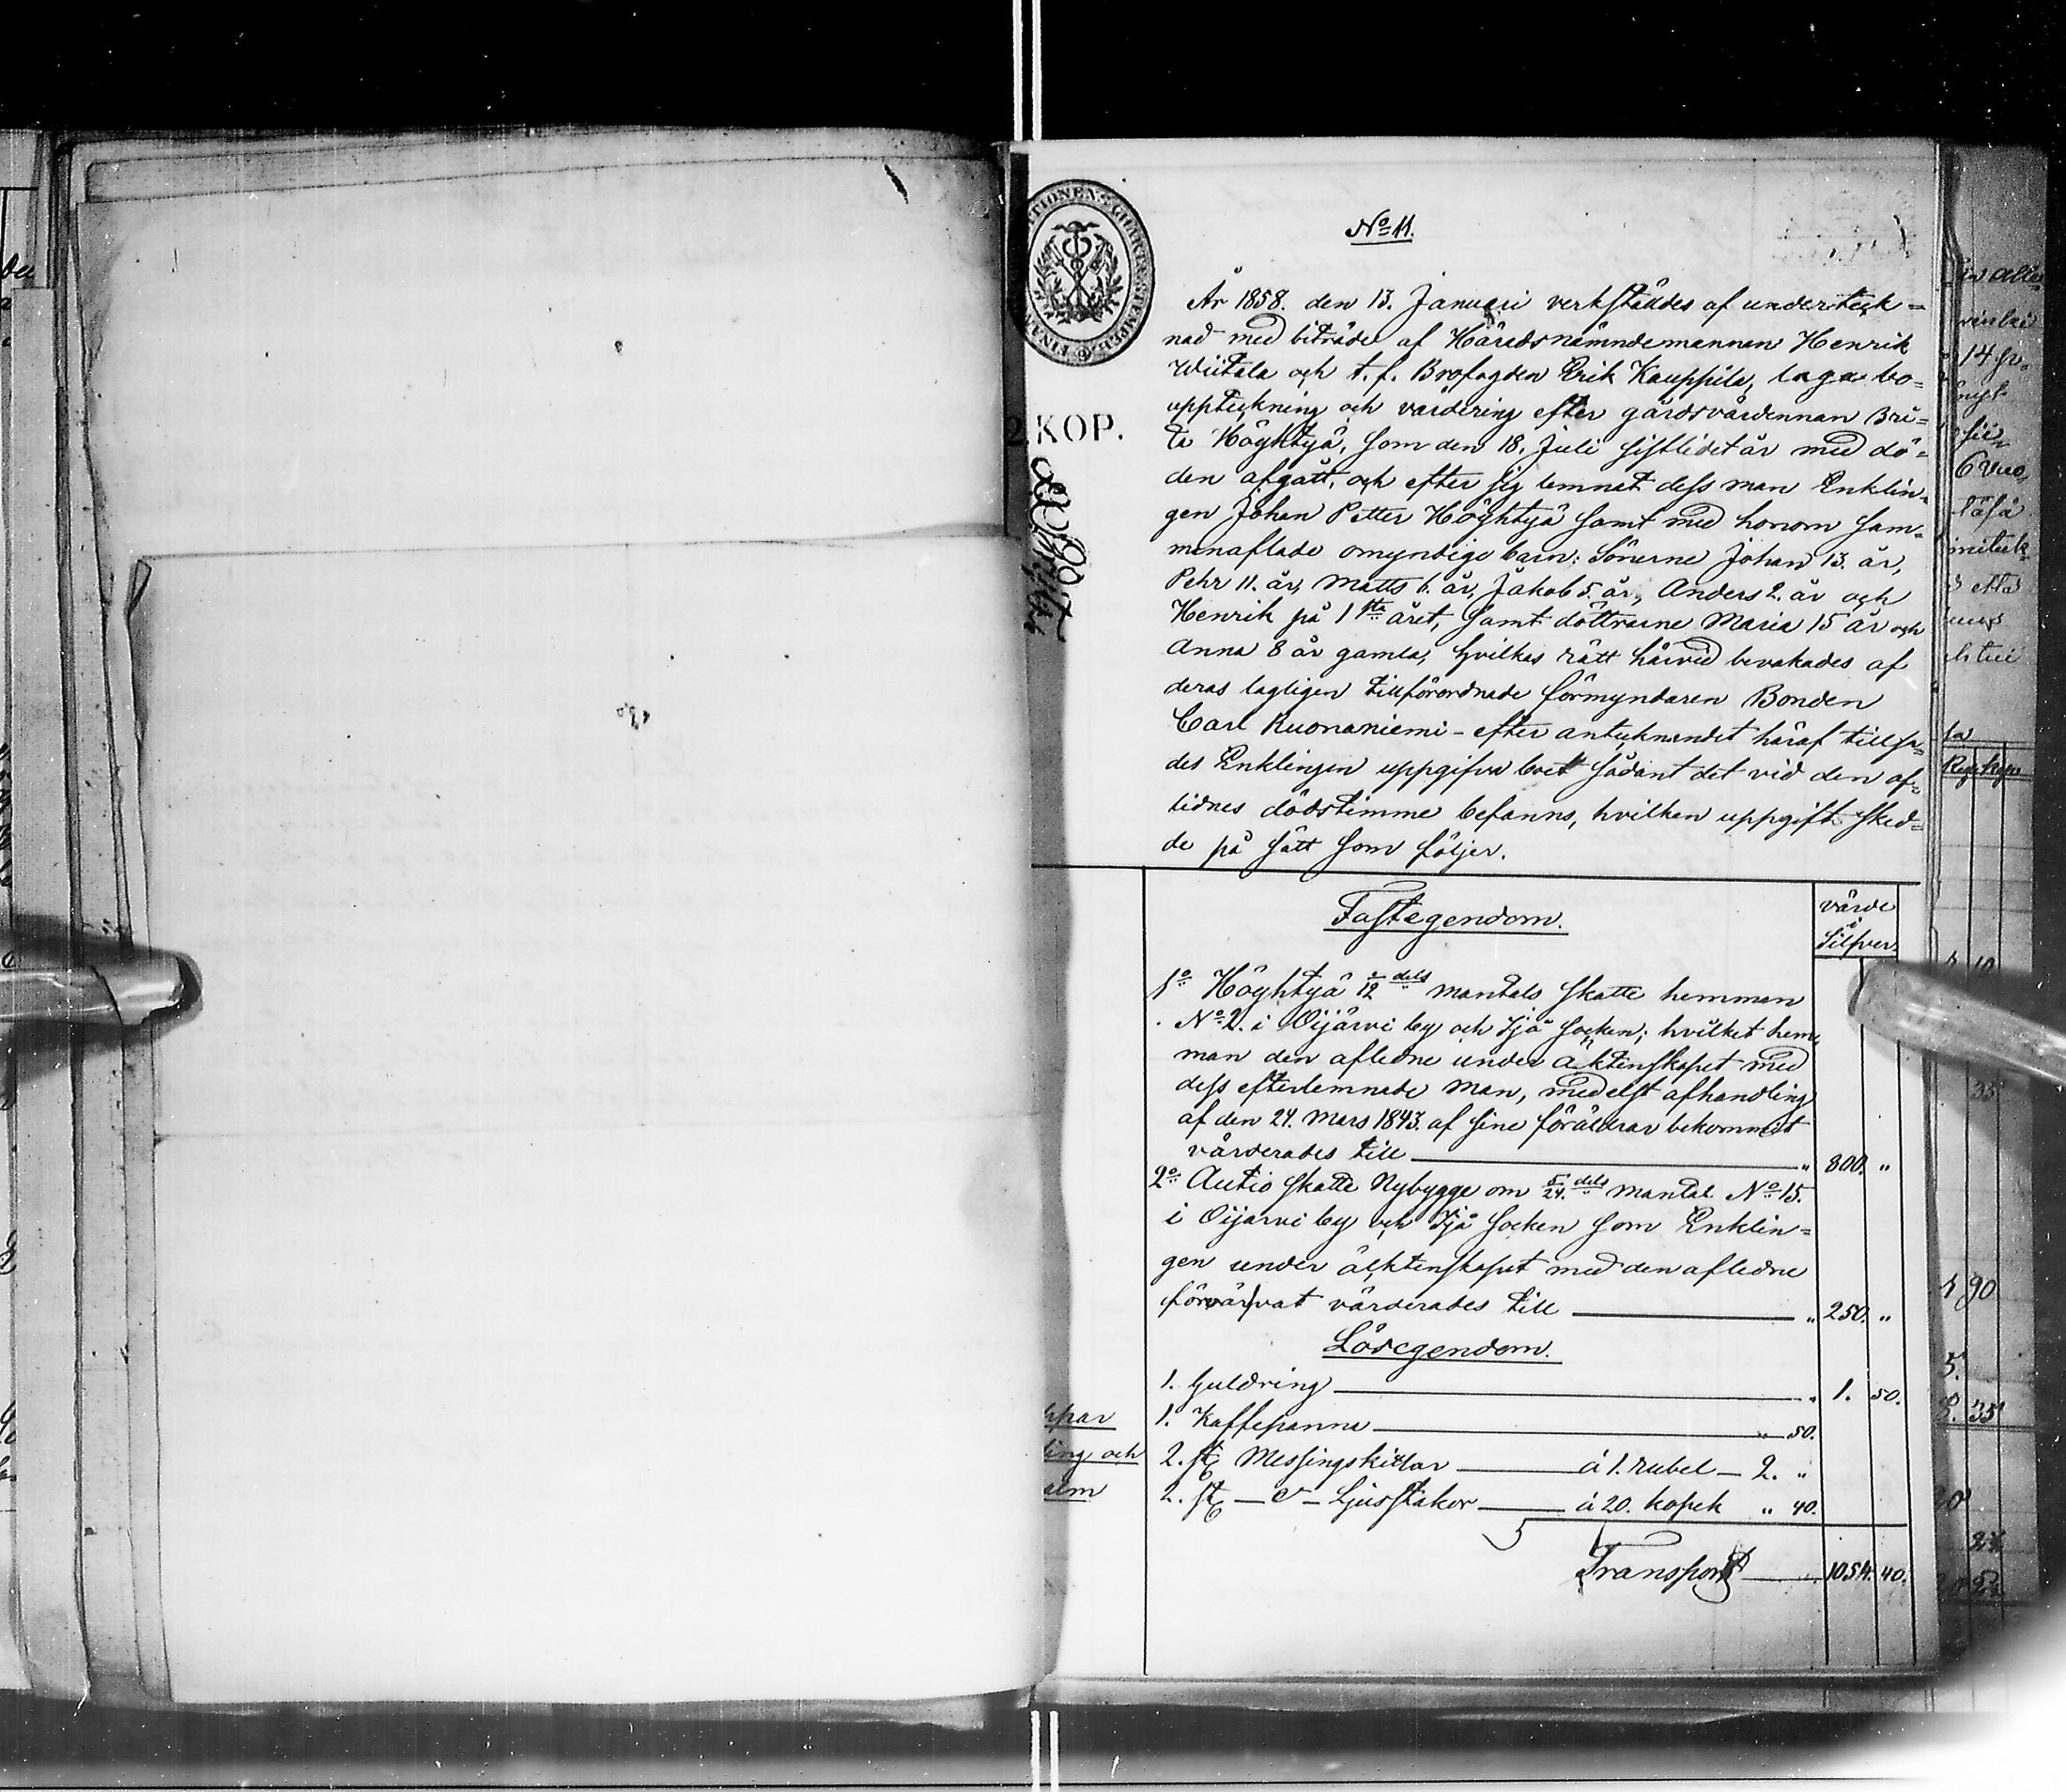 No 11.
År 1858. den 13. Januari verkställdes af underteck=
nad med biträde af Häradsnämndemannen Henrik
Wiitala och t. f. Brofogden Erik Kauppila, laga bo=
uppteckning och värdering efter gårdsvärdinnan Bri=
ta Höyhtyä, som den 18. Juli sistlidet år med dö=
den afgått, och efter sig lemnat dess man Enklin=
gen Johan Petter Höyhtyä samt med honom sam=
manaflade omyndige barn: Sönerne Johan 13. år,
Pehr 11. år, Matts 6. år, Jakob 5. år, Anders 2. år och
Henrik på 1sta året, samt döttrarne Maria 15 år och
Anna 8 år gamla, hvilkas rätt härvid bevakades af
deras lagligen tillförordnade förmyndaren Bonden
Carl Kuonaniemi - efter antecknandet häraf tillsa=
des Enklingen uppgifva boet sådant det vid den af=
lidnes dödstimme befanns, hvilken uppgift sked=
de på sätt som följer.
2. KOP.
Fastegendom.
värde
i
Silfver.
1o Höyhtyä /12 dels mantals skatte hemman
No 2. i Oijärvi by och Ijå socken; hvilket hem=
man den aflidne under äktenskapet med
dess efterlemnade man, medelst afhandling
af den 24. Mars 1843. af sine föräldrar bekommit
värderades till " 800. "
2o Autio skatte Nybygge om 5/24. dels mantal No 15.
i Oijarvi by och Ijå socken som Enklin=
gen under äktenskapet med den aflidne
förvärfvat värderades till " 250. "
Lösegendom.
1. Guldring " 1. 50.
1. Kaffepanna " 50.
2. st Messingskittlar á 1. rubel - 2. "
2. st - d:o - Ljusstakar á 20. kopek " 40.
ppar
ing och
alm
Transport 1054. 40.